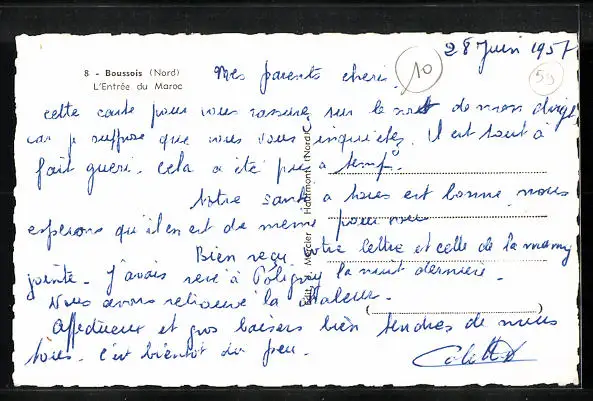 28 Juin 1957
8 - Boussois (Nord)
L'Entrée du Maroc
Mes parents chéri.
10
59
cette carte pour vous rassure sur le de mon doigt
car je suppose que vous vous inquietez. Il est tout à
fait gueri. cela a été pris a temps.
Notre santé a tous est bonne nous
esperons qu'il en est de même pour
Bien reçu votre lettre et celle de la mamy
jointe. J'avais revé à Poligny la nuit dernière.
Nous avons retrouvé la chaleur.
Affectueux et gros baisers bien tendres de nous
tous. c'est bientôt du feu.
Colette
Edit. Mercier Hautmont (Nord)